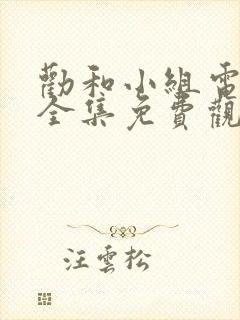 勸和小組電
全集免費觀
汪雲松